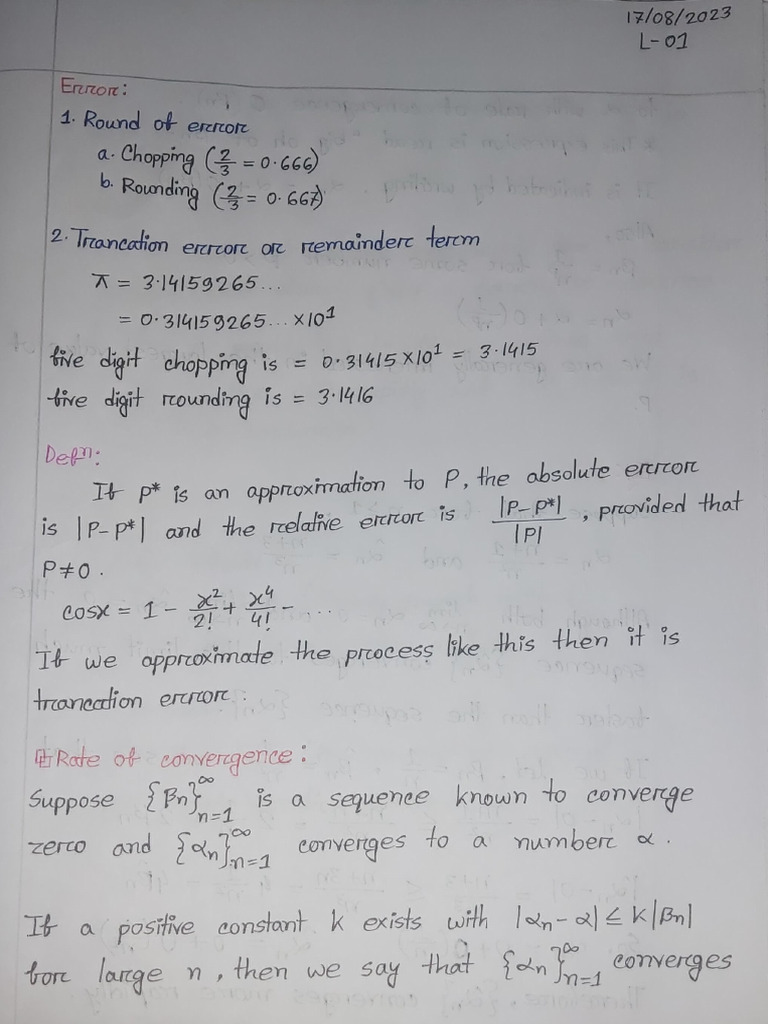 17/08/2023
L-01
Error:
1. Round of error
a. Chopping (2/3 = 0.666)
b. Rounding (2/3 = 0.667)
2. Trancation error or remainder term
π = 3.14159265...
= 0.314159265... ×10¹
five digit chopping is = 0.31415×10¹ = 3.1415
five digit rounding is = 3.1416
Defⁿ:
If p* is an approximation to P, the absolute error
is |P-p*| and the relative error is |P-p*|/|P|, provided that
P≠0.
cosx = 1 - x²/2! + x⁴/4! - ...
If we approximate the process like this then it is
trancation error.
⊞ Rate of convergence:
Suppose {βn}_{n=1}^∞ is a sequence known to converge
zero and {αn}_{n=1}^∞ converges to a number α.
If a positive constant k exists with |αn-α| ≤ k|βn|
for large n, then we say that {αn}_{n=1}^∞ converges